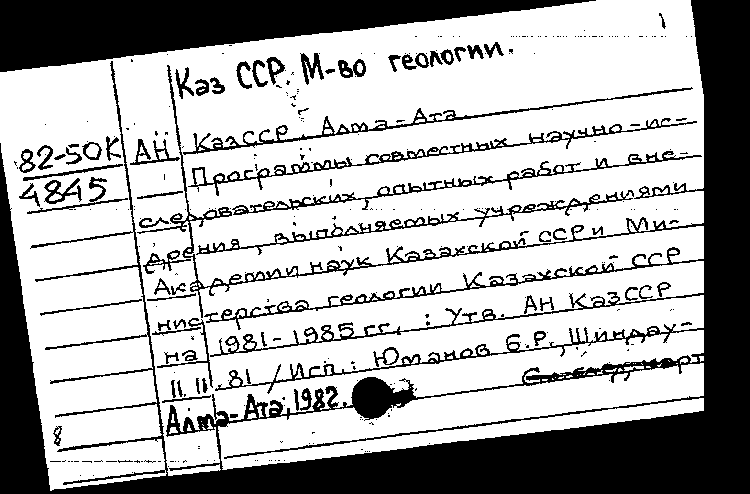 1
Каз ССР. М-во геологии.
82-50К АН КазССР. Алма-Ата.
4845 Программы совместных научно-ис-
следовательских, опытных работ и вне-
дрения, выполняемых учреждениями
Академии наук Казахской ССР и Ми-
нистерства геологии Казахской ССР
на 1981-1985 гг. : Утв. АН КазССР
11.11.81 / Исп.: Юманов Б.Р., Шиндау-
Алма-Ата, 1982.
8